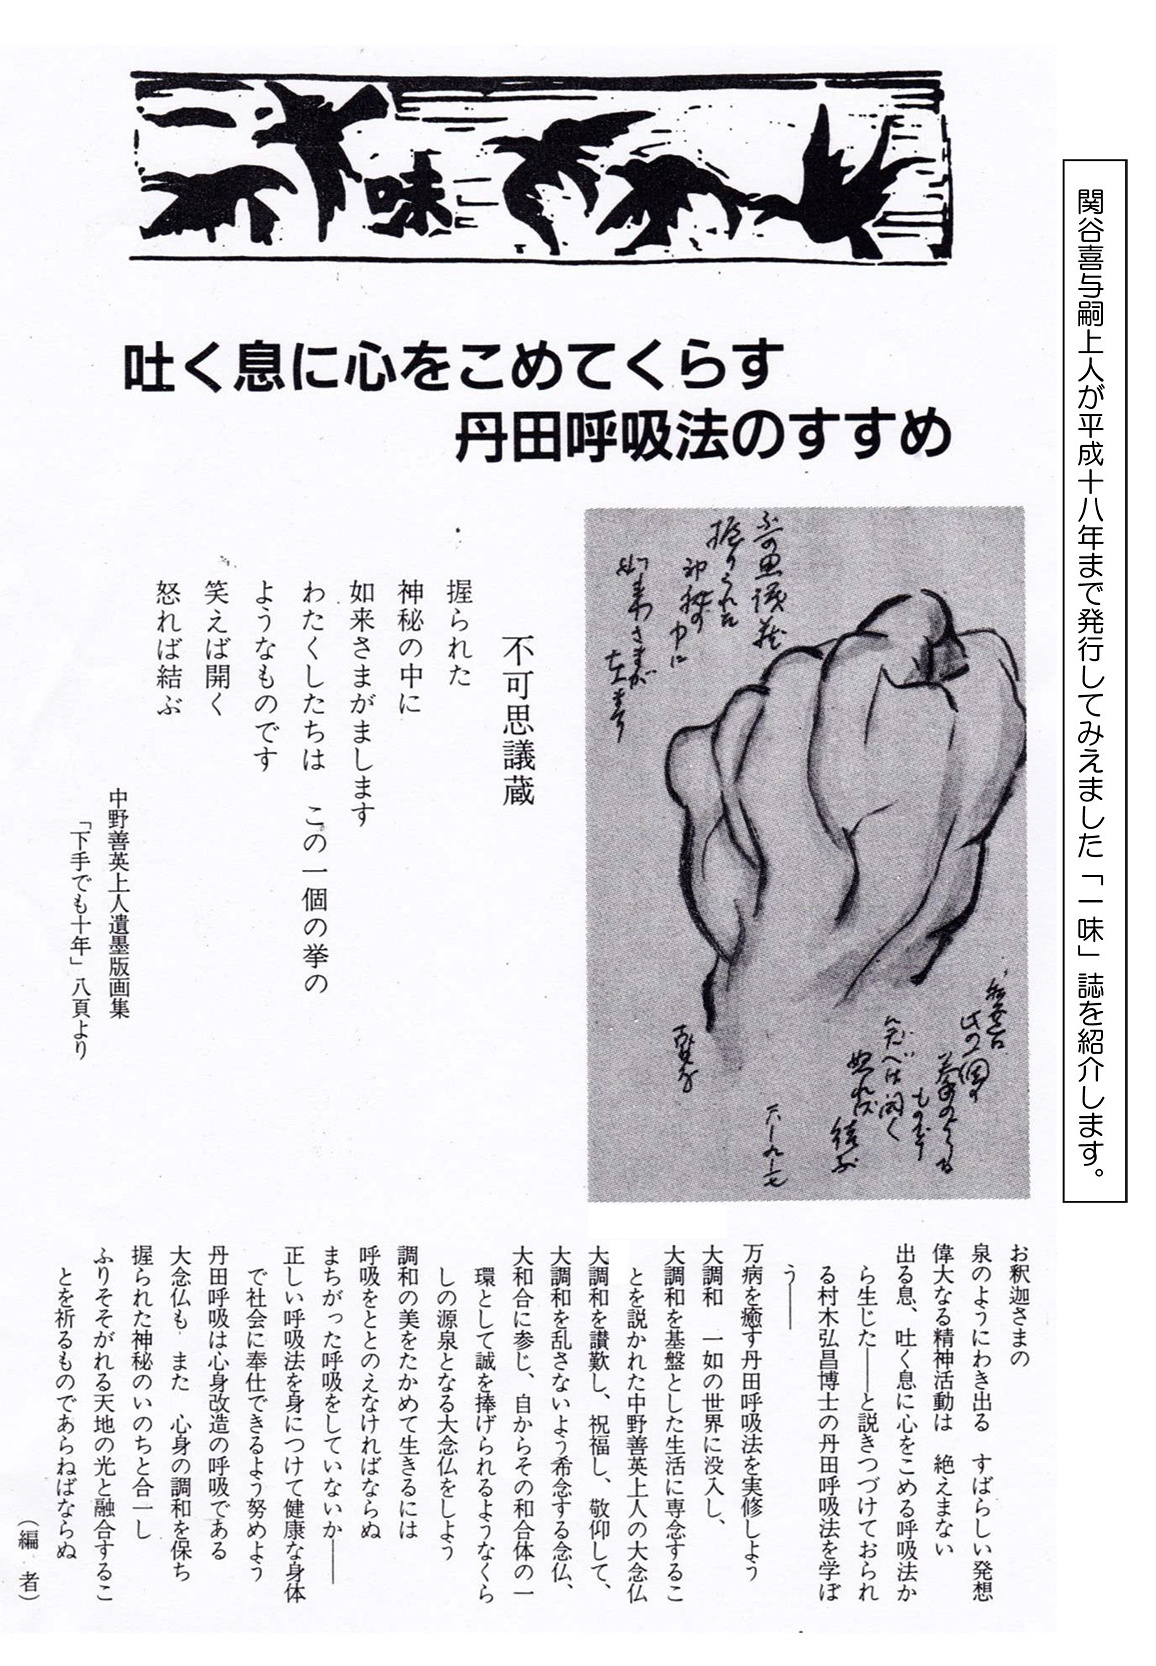 関谷喜与嗣上人が平成十八年まで発行してみえました「一味」誌を紹介します。
一味
吐く息に心をこめてくらす
丹田呼吸法のすすめ
不可思議蔵
握られた
神秘の中に
如来さまが
在ます
わたくしたちは
此の一個の
拳のような
ものです
笑へば開く
怒れば結ぶ
六一・九・一七
不可思議蔵
握られた
神秘の中に
如来さまがまします
わたくしたちは この一個の挙の
ようなものです
笑えば開く
怒れば結ぶ
中野善英上人遺墨版画集
「下手でも十年」八頁より
お釈迦さまの
泉のようにわき出る すばらしい発想
偉大なる精神活動は 絶えまない
出る息、吐く息に心をこめる呼吸法か
ら生じた――と説きつづけておられ
る村木弘昌博士の丹田呼吸法を学ぼ
う――
万病を癒す丹田呼吸法を実修しよう
大調和 一如の世界に没入し、
大調和を基盤とした生活に専念するこ
とを説かれた中野善英上人の大念仏
大調和を讃歎し、祝福し、敬仰して、
大調和を乱さないよう希念する念仏、
大和合に参じ、自からその和合体の一
環として誠を捧げられるようなくら
しの源泉となる大念仏をしよう
調和の美をたかめて生きるには
呼吸をととのえなければならぬ
まちがった呼吸をしていないか――
正しい呼吸法を身につけて健康な身体
で社会に奉仕できるよう努めよう
丹田呼吸は心身改造の呼吸である
大念仏も また 心身の調和を保ち
握られた神秘のいのちと合一し
ふりそそがれる天地の光と融合するこ
とを祈るものであらねばならぬ
（編 者）